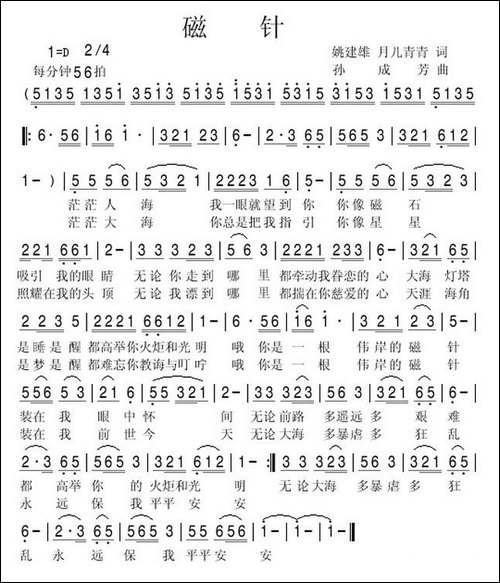 磁 针
1=D 2/4
姚建雄 月儿青青 词
每分钟56拍
孙 成 芳 曲
(5135 1351 3513 5135 1351 3513 5315 3153 1531 5315 3153 1531 5135
‖: 6· 56 | i6 i· | 321 23 | 6- | 2·3 65 | 565 3 | 321 612 |
1-) | 5 5 56 | 5 3 2 1 | 2223 1 6 | 5- | 5 5 56 | 5 3 2 1 |
茫茫 人 海 我一眼就望到 你 你像 磁 石
茫茫 大 海 你总是把我指 引 你像 星 星
221 661 | 2- | 33 323 | 563 | 221 23 | 6- | 321 65 |
吸引 我的眼 睛 无论 你走到 哪 里 都牵动我眷恋的 心 大海 灯塔
照耀在我的头 顶 无论 我漂到 哪 里 都揣在你慈爱的 心 天涯 海角
2235 | 2221 6612 | 1- | 6·56 | i6 i· | 321 23 | 5- |
是睡是醒 都高举你火炬和光 明 哦 你是 一 根 伟岸的磁 针
是梦是醒 都难忘你教诲与叮 咛 哦 你是 一 根 伟岸的磁 针
556 53 | 216 | 55 321 | 2- | 33 323 | 565 3 | 321 612 | 6- |
装在 我 眼 中 怀 间 无论前路 多遥远 多 艰 难
装在 我 前 世 今 天 无论大海 多暴虐 多 狂 乱
2·3 65 | 565 3 | 321 612 | 1- :‖ 33 323 | 565 3 | 321 65 |
都 高举 你 的 火炬和 光 明 无论大海 多暴虐 多 狂
永 远保 我 平平 安 安
6- | 2·3 65 | 565 3 | 5· 6 56 | 1- | 1- | 1- ‖
乱 永 远保 我 平平安 安